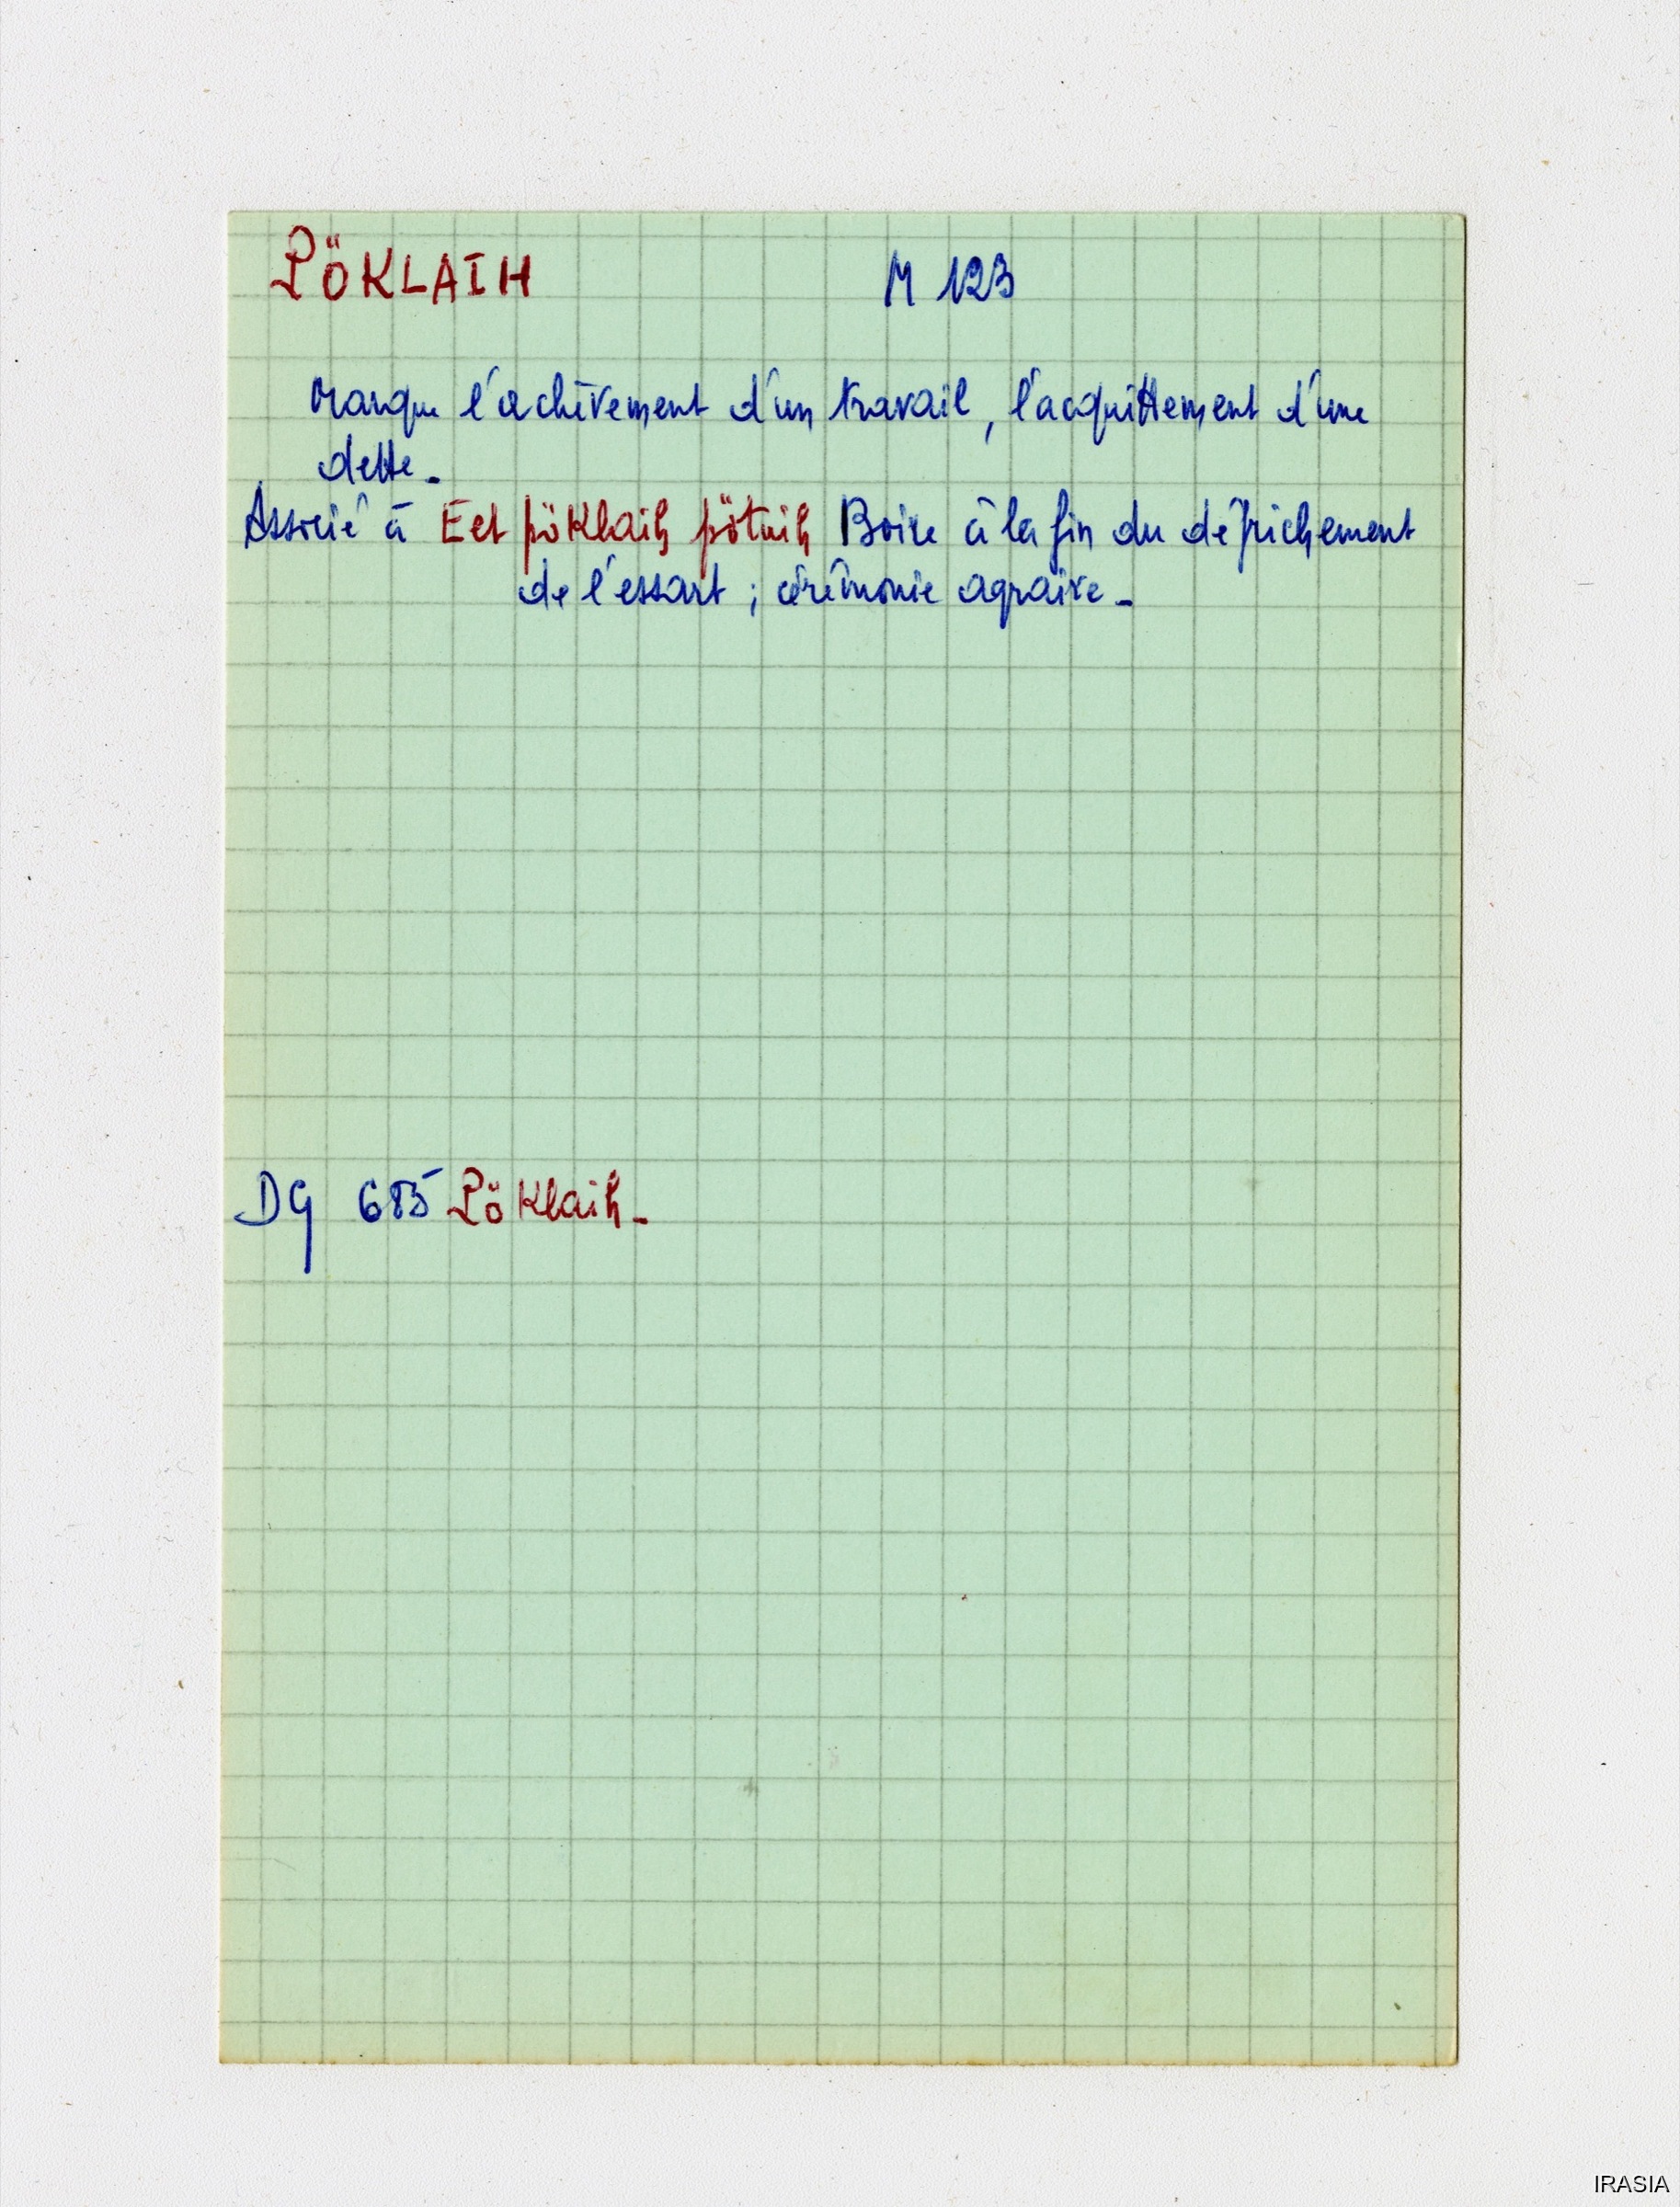 PÖKLAIH M 123
Marque l'achèvement d'un travail, l'acquittement d'une
dette.
Associé à Eet pöklaih pötuih Boire à la fin du défrichement
de l'essart ; cérémonie agraire.
DG 685 Pöklaih.
IRASIA